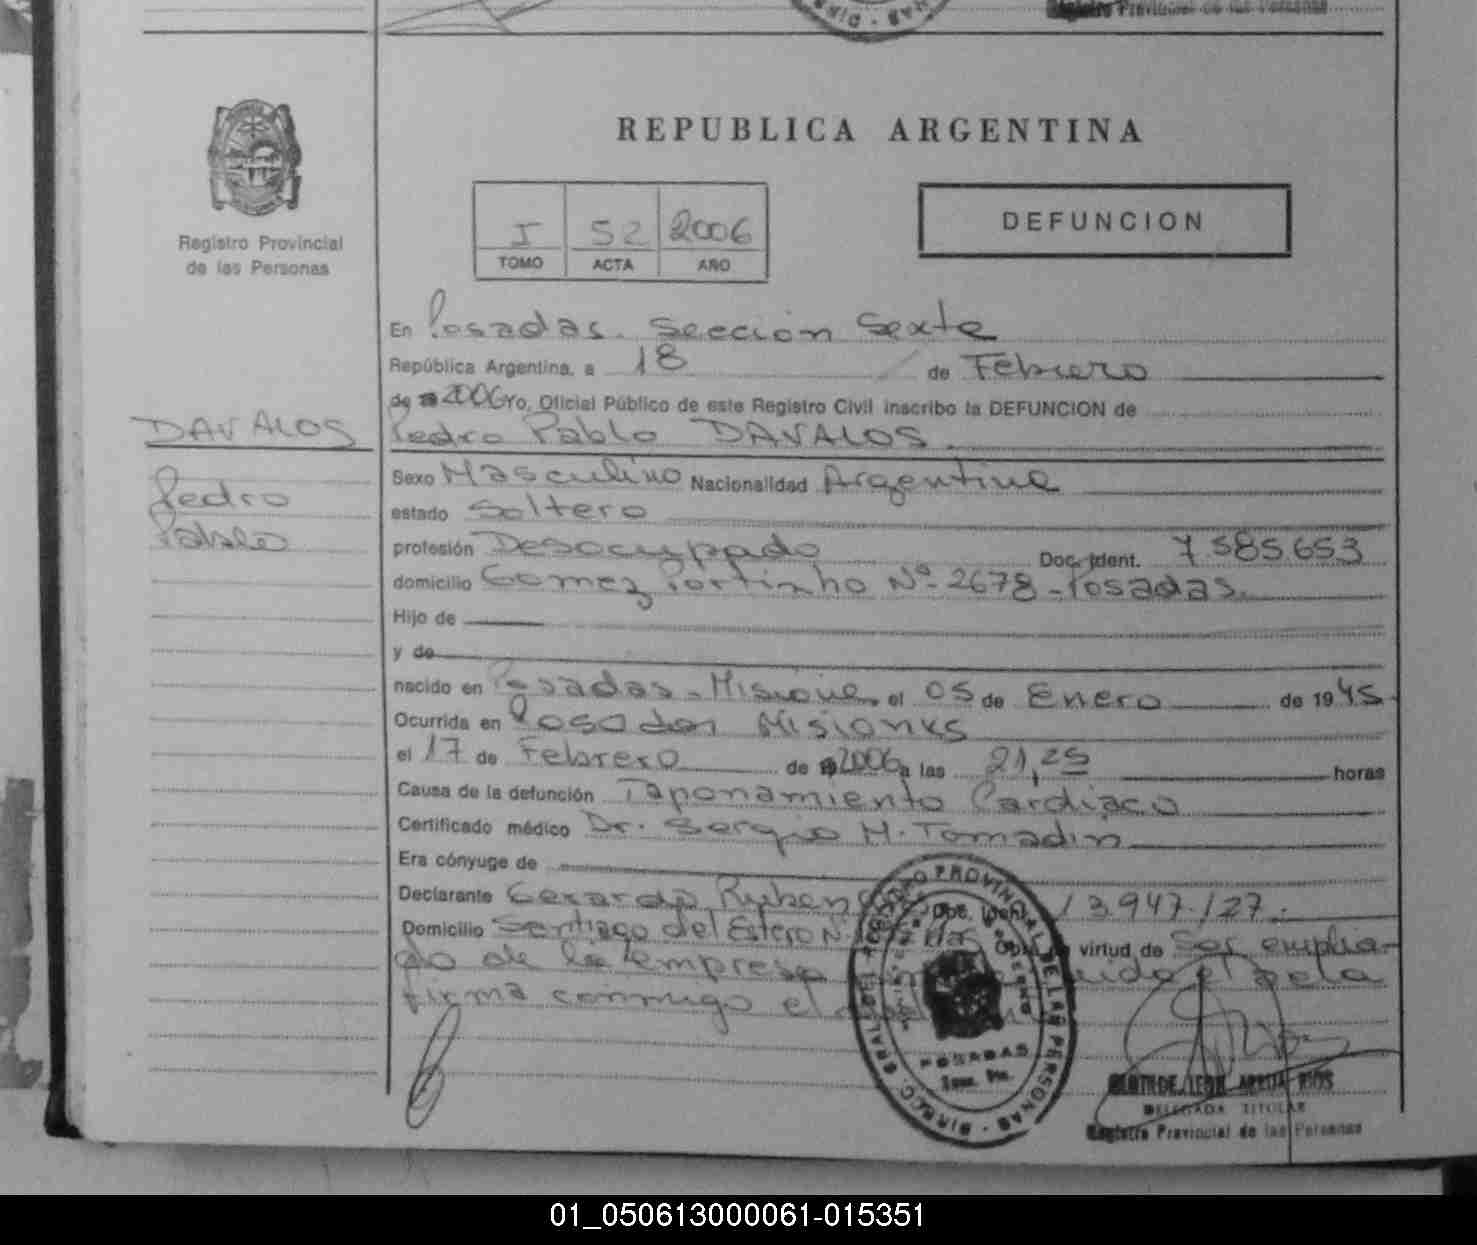 Registro Provincial de las Personas
REPUBLICA ARGENTINA
Registro Provincial
de las Personas
I 52 2006
TOMO ACTA AÑO
DEFUNCION
En Posadas. Sección Sexta
República Argentina, a 18 de Febrero
de 2006 yo, Oficial Público de este Registro Civil inscribo la DEFUNCION de
DAVALOS
Pedro Pablo DAVALOS
Pedro
Pablo
Sexo Masculino Nacionalidad Argentina
estado Soltero
profesión Desocupado Doc. Ident. 7.585.653
domicilio Gomez Portinho Nº 2678 - Posadas.
Hijo de
y de
nacido en Posadas - Misiones el 05 de Enero de 1945
Ocurrida en Posadas Misiones
el 17 de Febrero de 2006 a las 21,25 horas
Causa de la defunción Taponamiento Cardiaco
Certificado médico Dr. Sergio H. Tomadin
Era cónyuge de
Declarante Gerardo Ruben Doc. Ident. 13.947.127.
Domicilio Santiago del Estero N virtud de Ser emplea-
do de la empresa
firma conmigo el
REGISTRO PROVINCIAL DE LAS PERSONAS
POSADAS
DELEGADA TITULAR
Registro Provincial de las Personas
01_050613000061-015351